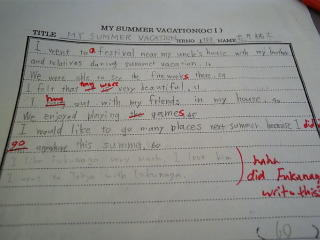 MY SUMMER VACATION(OC I)
TITLE MY SUMMER VACATION NAME
I went to a festival near my uncle's house with my brother
and relatives during summer vacation. 16
We were able to see the fireworks there. 24
I felt that they were very beautiful. 31
I hung out with my friends in my house.
We enjoyed playing the games 45
I would like to go many places next summer because I didn't
go anywhere this summer. 60
I like Fukunaga very much. I love him
I went to Tokyo with Fukunaga.
haha
did Fukunaga
write this
(60)